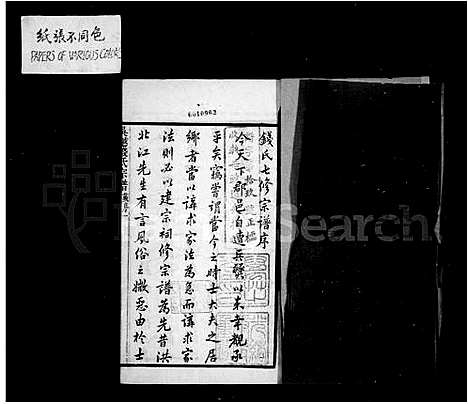 紙張不同色
PAPERS OF VARIOUS COLORS
錢氏七修宗譜序
今天下郡邑自遭兵燹以來幸覩承
平矣竊嘗謂當今之時士大夫之居
鄉者當以講求家法為急而講求家
法則必以建宗祠修宗譜為先昔洪
北江先生有言風俗之媺惡由於士
Search